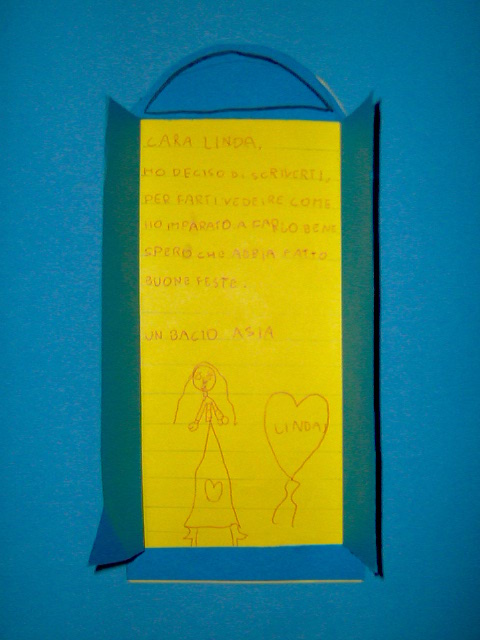 CARA LINDA,
HO DECISO DI SCRIVERTI,
PER FARTI VEDERE COME
HO IMPARATO A FARLO BENE
SPERO CHE ABBIA FATTO
BUONE FESTE.
UN BACIO ASIA
LINDA